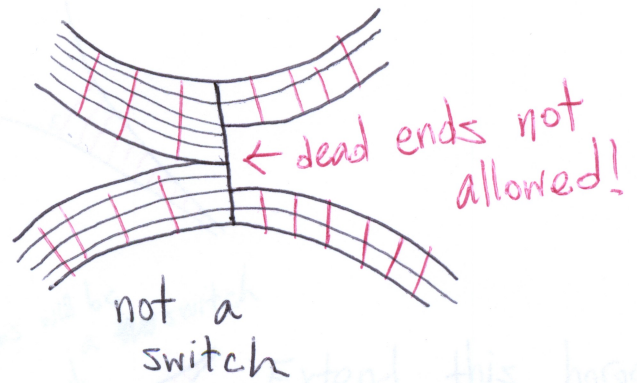 ← dead ends not
allowed!
not a
switch